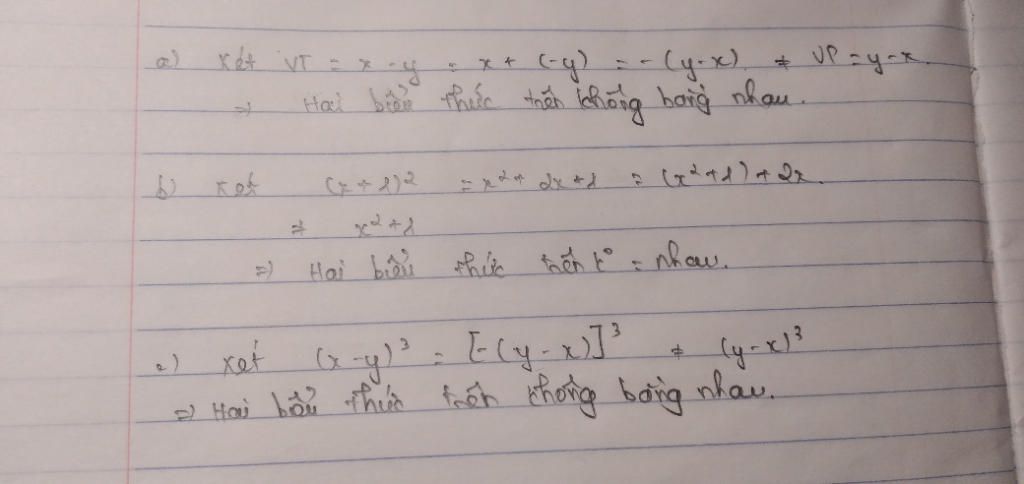 a) Xét VT = x - y = x + (-y) = - (y-x) ≠ VP = y-x.
=> Hai biểu thức trên không bằng nhau.
b) Xét (x+1)² = x² + 2x + 1 = (x²+1) + 2x.
≠ x² + 1
=> Hai biểu thức trên k° = nhau.
c) Xét (x-y)³ = [-(y-x)]³ ≠ (y-x)³
=> Hai biểu thức trên không bằng nhau.